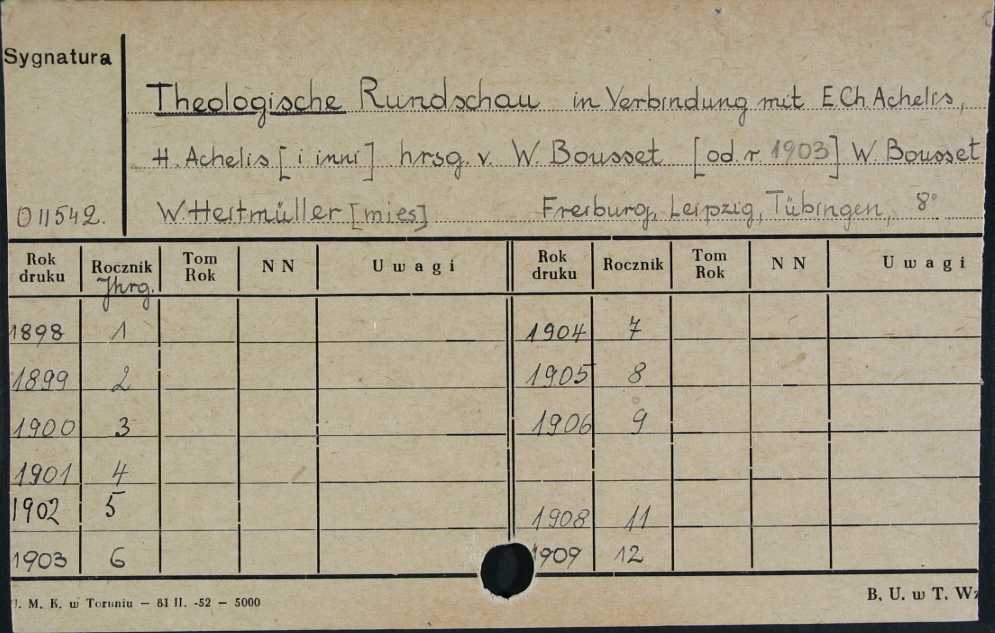 Sygnatura
Theologische Rundschau in Verbindung mit E.Ch. Achelis,
H. Achelis [i inni] hrsg. v. W. Bousset [od r. 1903] W. Bousset
011542. W. Heitmüller [mies] Freiburg, Leipzig, Tübingen, 8°
Rok druku Rocznik Tom Rok NN Uwagi Rok druku Rocznik Tom Rok NN Uwagi
Jhrg.
1898 1 1904 7
1899 2 1905 8
1900 3 1906 9
1901 4
1902 5 1908 11
1903 6 1909 12
. M. K. w Toruniu — 81 II. -52 — 5000 B. U. w T. Wz